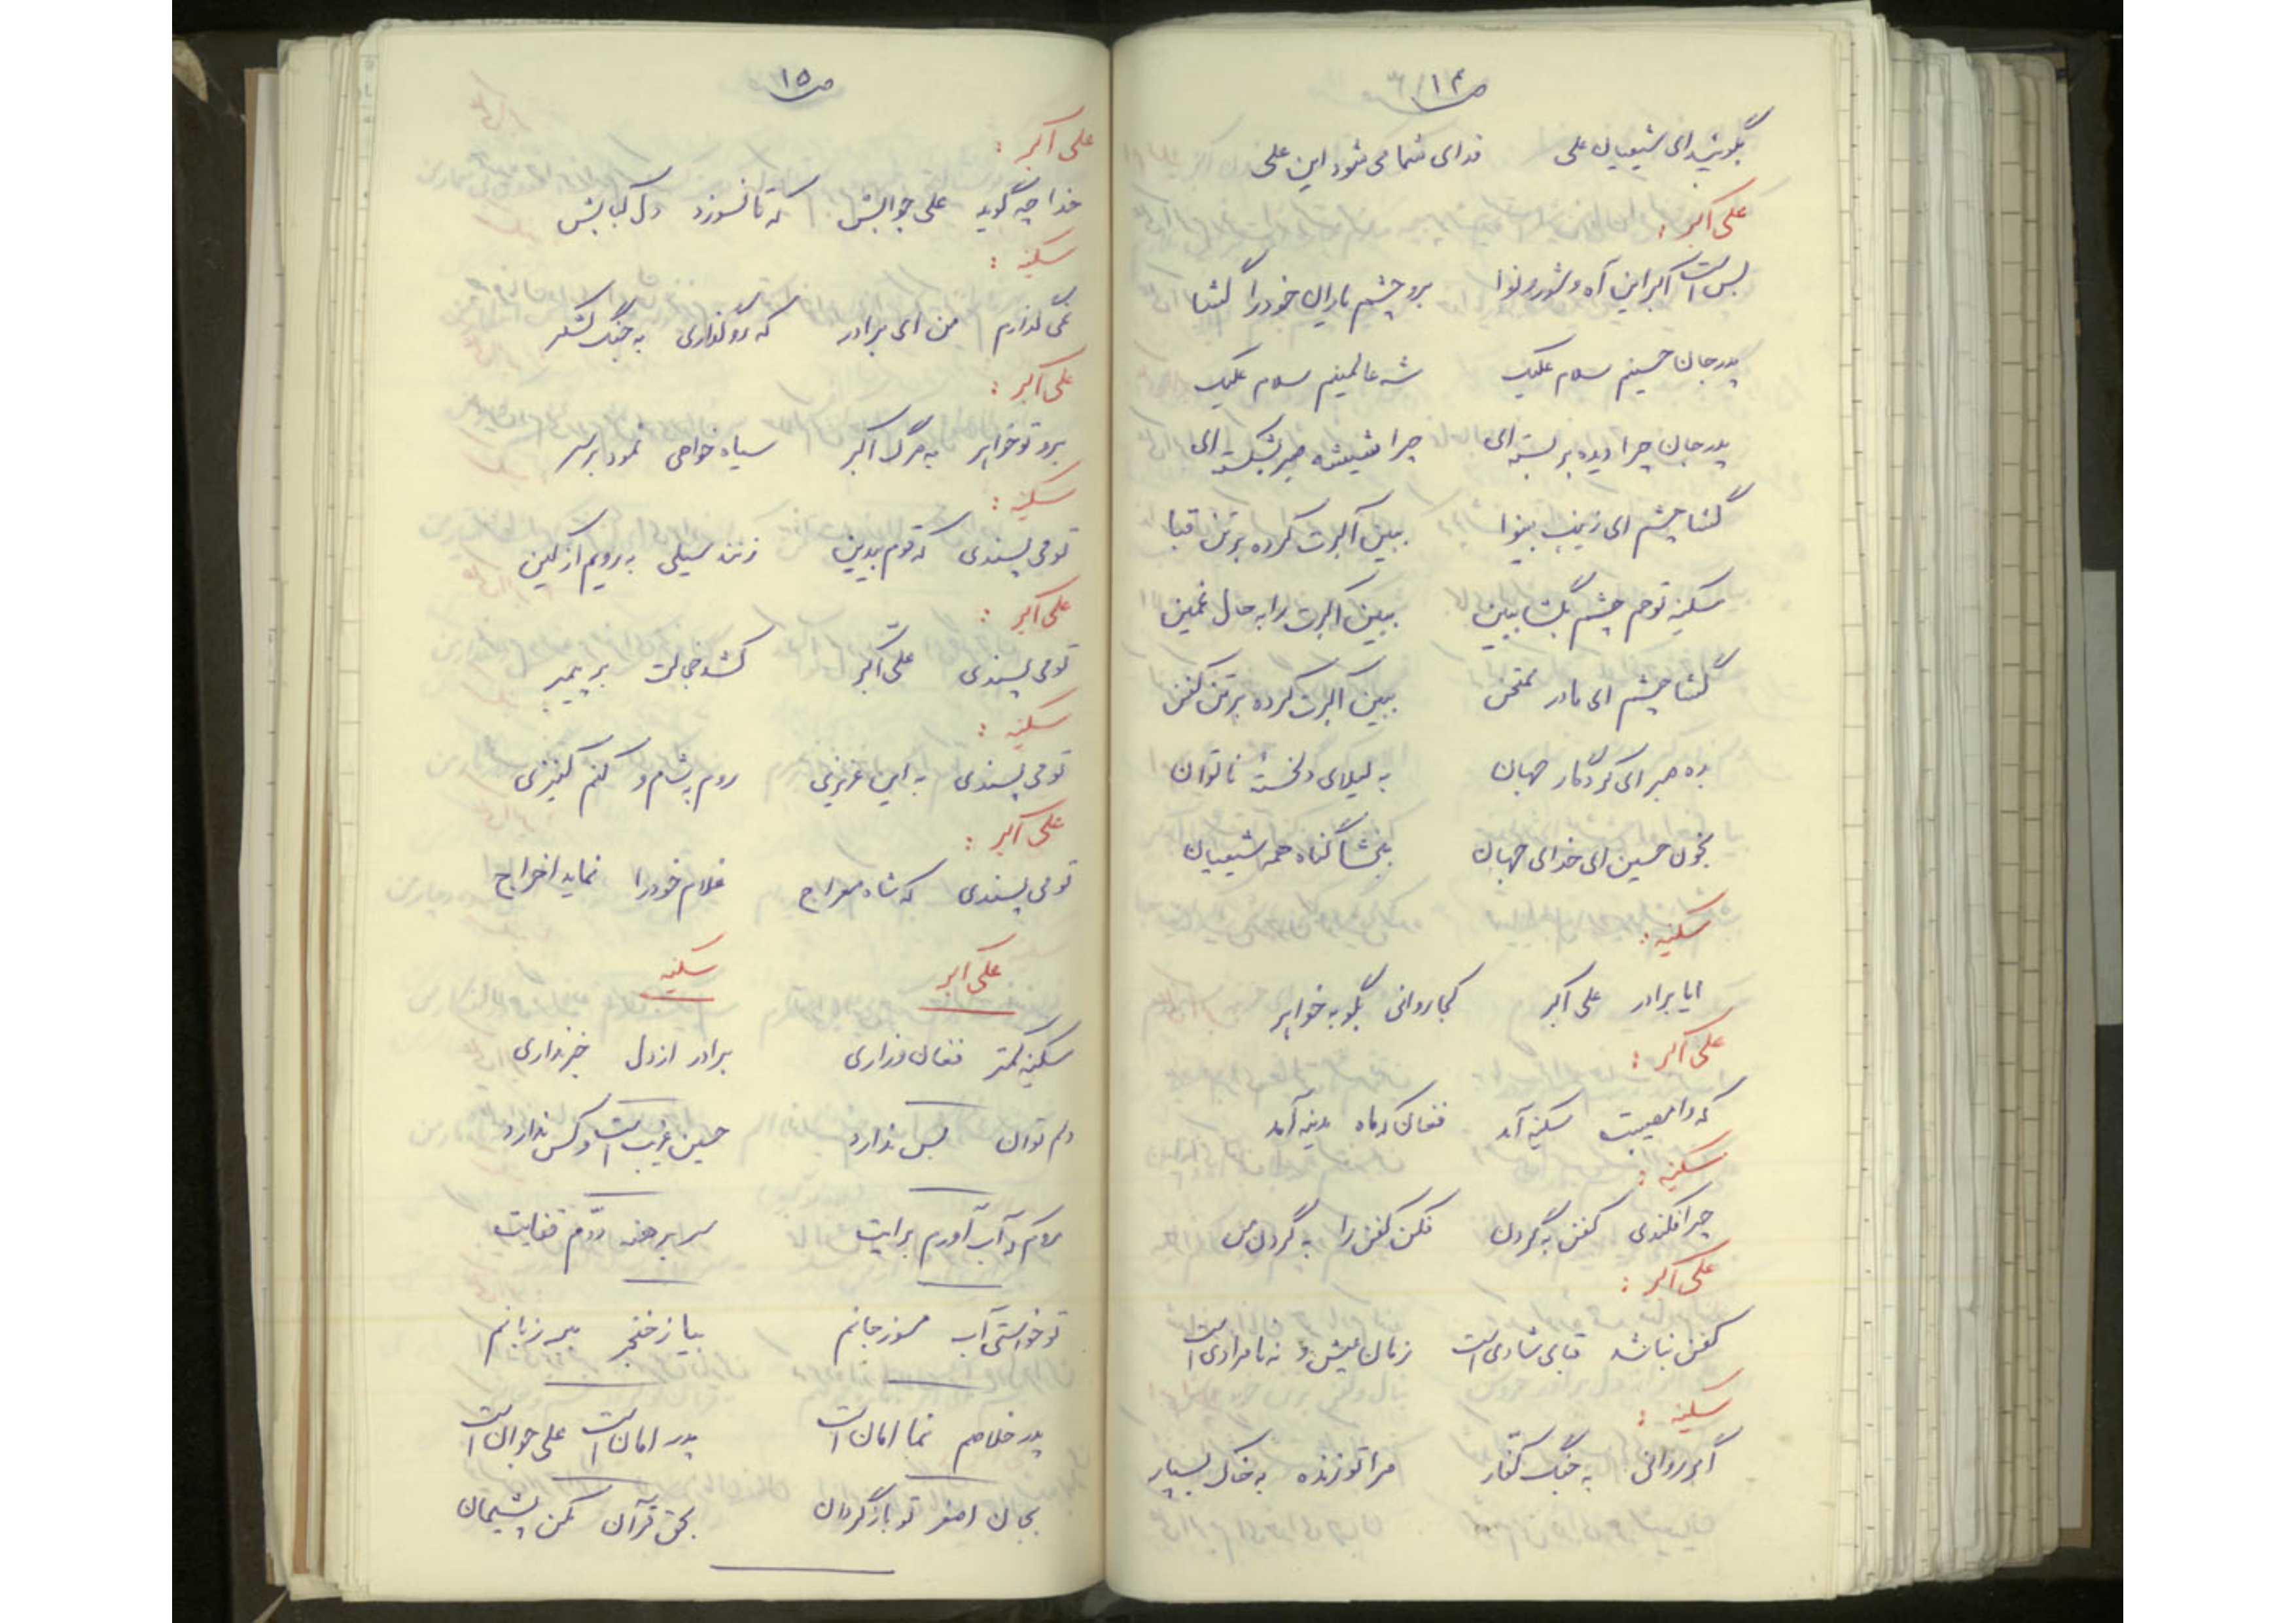 ص ۱۴
بگوئید ای شیعیان علی فدای شما می شود این علی
علی اکبر :
بس است اکبر این آه و شور و نوا برو چشم یاران خود را گشا
پدر جان حسینم سلام علیک شه عالمینم سلام علیک
پدر جان چرا دیده بر بسته ای چرا شیشه صبر بشکسته ای
گشا چشم ای زینب بینوا ببین اکبرت کرده بر تن قبا
سکینه تو هم چشم بگشا ببین ببین اکبرت را به حال غمین
گشا چشم ای مادر ممتحن ببین اکبرت کرده بر تن کفن
بده صبر ای کردگار جهان به لیلای دلخسته ناتوان
بخون حسین ای خدای جهان ببخشا گناه همه شیعیان
سکینه :
ایا برادر علی اکبر کجا روانی بگو به خواهر
علی اکبر :
که وا مصیبت سکینه آمد فغان که ماه مدینه آمد
سکینه :
چرا فکندی کفن به گردن فکن کفن را به گردن من
علی اکبر :
کفن نباشد قبای شادی است زمان عیش و نه نامرادی است
سکینه :
اگر روانی به جنگ کفار مرا تو زنده به خاک بسپار
ص ۱۵
علی اکبر :
خدا چه گوید علی جوابش که تا نسوزد دل کبابش
سکینه :
نمی گذارم من ای برادر که رو گذاری به جنگ لشگر
علی اکبر :
برو تو خواهر به مرگ اکبر سیاه خواهی نمود بر سر
سکینه :
تو می پسندی که قوم بیدین زنند سیلی به رویم از کین
علی اکبر :
تو می پسندی علی اکبر کشد خجالت بر پیمبر
سکینه :
تو می پسندی به این عزیزی روم به شام و کنم کنیزی
علی اکبر :
تو می پسندی که شاه معراج غلام خود را نماید اخراج
علی اکبر سکینه
سکینه کمتر فغان و زاری برادر از دل خبر نداری
دلم توان بس ندارد حسین غریب است و کس ندارد
روم که آب آورم برایت سر برهنه دوم قفایت
تو خواستی آب مسوز جانم بیا ز خنجر ببر زبانم
پدر خلاصم نما امان است پدر امان است علی جوان است
بجان اصغر تو باز گردان بحق قرآن مکن پشیمان